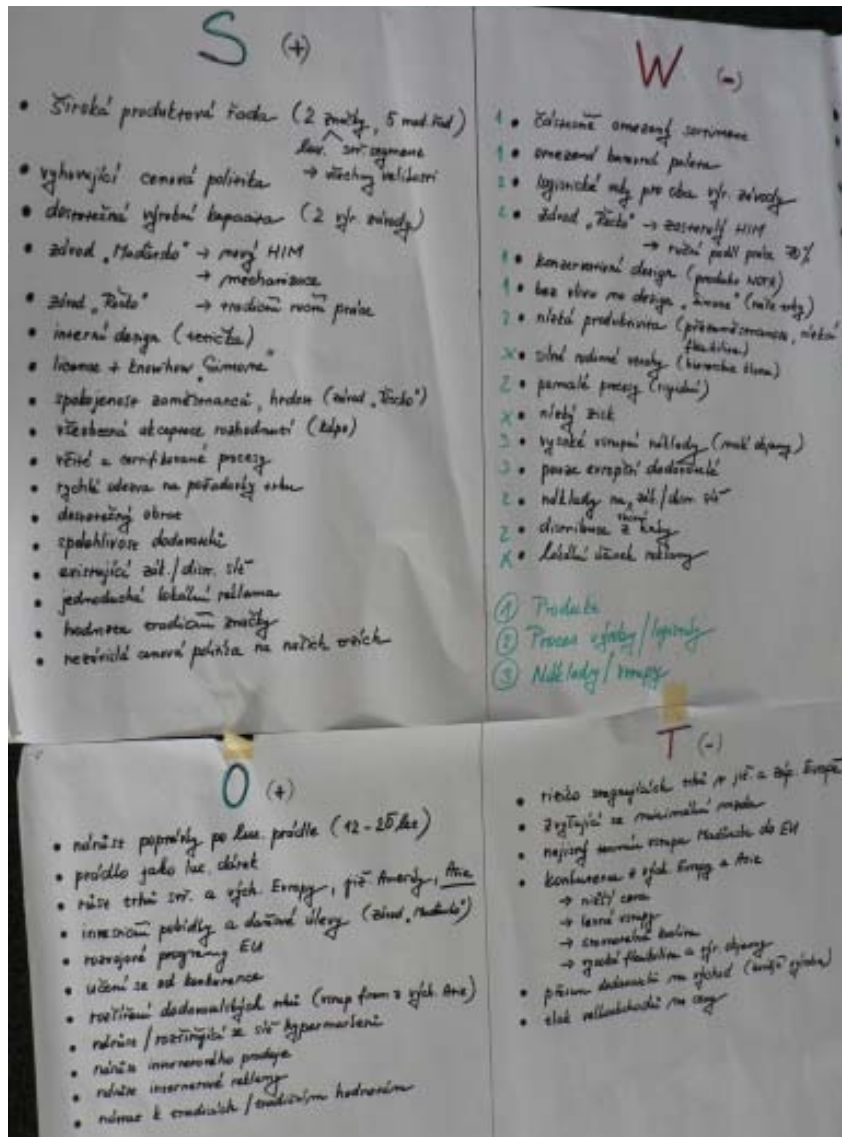 S (+)
• široká produktová řada (2 značky, 5 mod. řad)
lux. stř. segment
→ všechny velikosti
• vyhovující cenová politika
• dostatečná výrobní kapacita (2 výr. závody)
• závod „Maďarsko“ → nový HIM
→ mechanizace
• závod „Řecko“ → tradiční ruční práce
• interní design
• licence + knowhow „Simone“
• spokojenost zaměstnanců, hrdost (závod „Řecko“)
• všeobecná akceptace rozhodnutí
• a certifikované procesy
• rychlá odezva na požadavky trhu
• dostatečný obrat
• spolehlivost dodavatelů
• existující zák./distr. síť
• jednoduchá lokální reklama
• hodnota tradiční značky
• nezávislá cenová politika na našich trzích
W (-)
1 • částečně omezený sortiment
1 • omezená barevná paleta
2 • logistické pro oba výr. závody
2 • závod „Řecko“ → zastaralý HIM
→ ruční podíl práce 70%
1 • konzervativní design
1 • bez vlivu na design „Simone“
2 • nízká produktivita (přezaměstnanost, nízká
flexibilita)
x • silné rodinné vazby
2 • pomalé procesy (rigidní)
x • nízký zisk
3 • vysoké vstupní náklady (malé objemy)
3 • pouze evropští dodavatelé
2 • náklady na zák./distr. síť
2 • distribuce z
x • lokální účinek reklamy
① Produkt
② Proces výroby/logistiky
③ Náklady/vstupy
O (+)
• nárůst poptávky po lux. prádle (12-25 let)
• prádlo jako lux. dárek
• růst trhů stř. a vých. Evropy, již. Ameriky, Asie
• investiční pobídky a daňové úlevy (závod „Maďarsko“)
• rozvojové programy EU
• učení se od konkurence
• rozšíření dodavatelských trhů (vstup firem z vých. Asie)
• nárůst/rozšiřující se síť hypermarketů
• nárůst internetového prodeje
• nárůst internetové reklamy
• návrat k tradicích/tradičním hodnotám
T (-)
• riziko stagnujících trhů v již. a záp. Evropě
• zvyšující se minimální mzda
• nejistý termín vstupu Maďarska do EU
• konkurence z vých. Evropy a Asie
→ nižší cena
→ levné vstupy
→ srovnatelná kvalita
→ vysoká flexibilita a výr. objemy
• přesun dodavatelů na východ
• tlak velkoobchodů na ceny